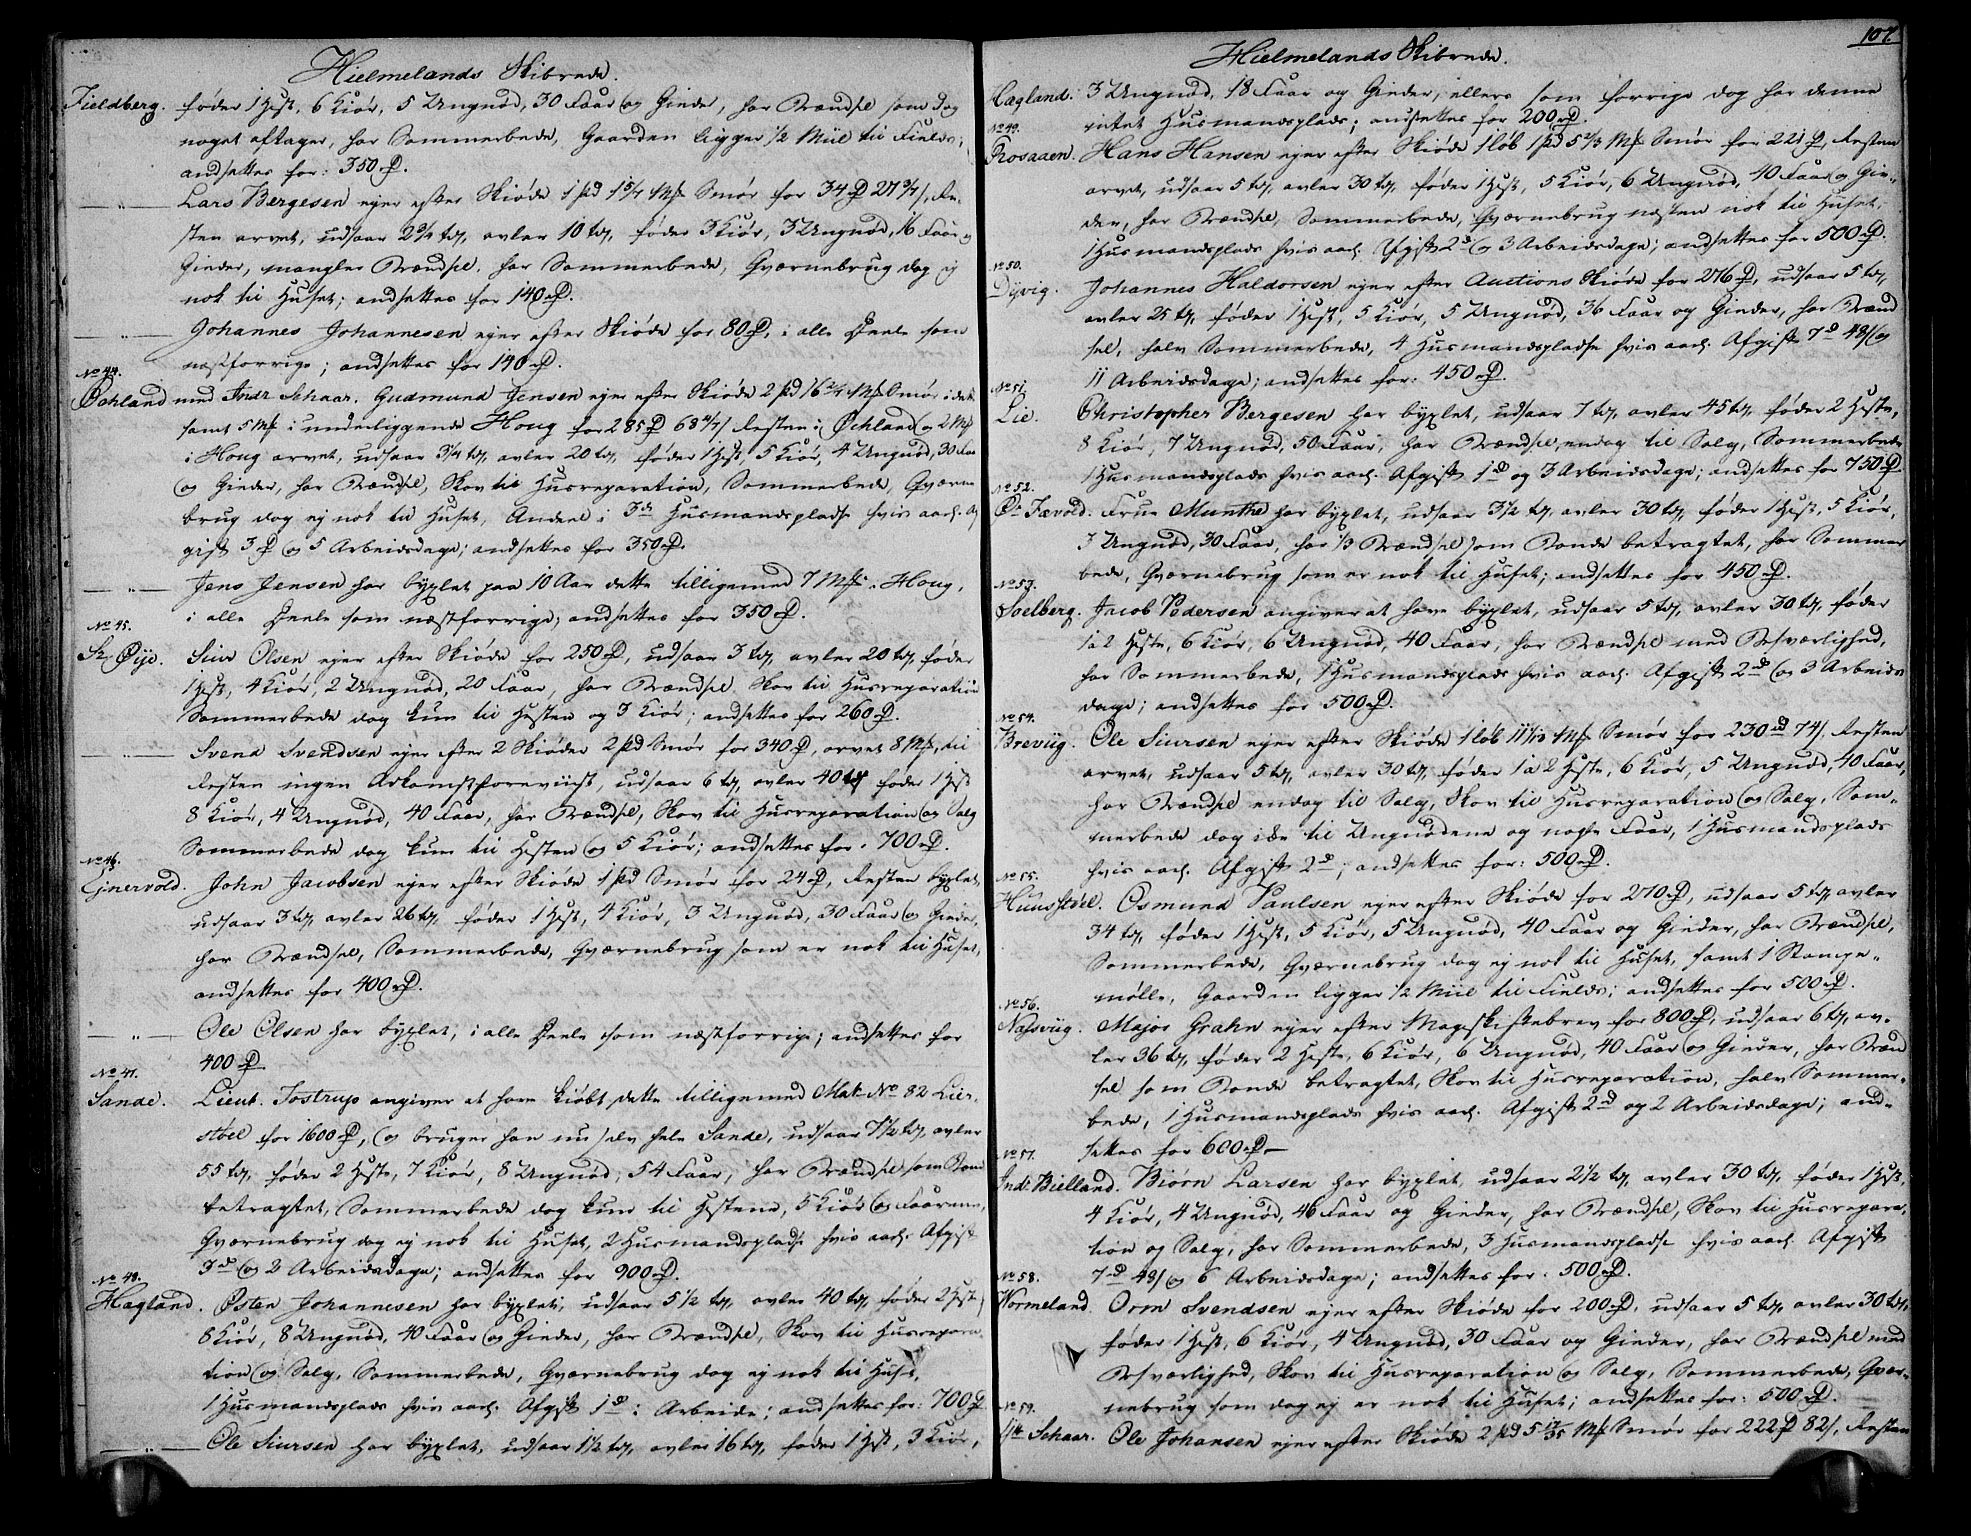 Hielmelands Skibrede.
Fieldberg. føder 1 Hest, 6 Kiør, 5 Ungnød, 30 Faar og Gieder, har Brændsel som dog
noget aftager, har Sommerbede, Gaarden ligger 1/2 Miil til Fields;
andsættes for: 350 rD.
Lars Bergesen ejer efter Skiøde 1 pd 1 5/7 Mk Smør for 34 D 27 3/7 s, Re-
sten arvet, udsaar 2 3/4 td, avler 10 td, føder 3 Kiør, 3 Ungnød, 16 Faar og
Gieder, mangler Brændsel, har Sommerbede, Qværnebrug dog ej
nok til Huset; andsættes for 140 rD.
Johannes Johannesen ejer efter Skiøde for 80 D, i alle Deele som
næstforrige; andsættes for 140 rD.
No 44.
Øchland med Indr Schaar. Gudmund Jensen ejer efter Skiøde 2 pd 16 2/7 Mk Smør i dette
samt 5 Mk i underliggende Houg for 285 D 68 4/7 s Resten i Øchland og 2 Mk
i Houg arvet, udsaar 3 1/4 td, avler 20 td, føder 1 Hest, 5 Kiør, 4 Ungnød, 30 Faar
og Gieder, har Brændsel, Skov til Husreparation, Sommerbede, Qværne
brug dog ej nok til Huset, Andeel i 3de Husmandspladse hvis aarl. Af
gift 3 D og 5 Arbeidsdage; andsættes for 350 rD.
Jens Jensen har byxlet paa 10 Aar dette tilligemed 7 Mk i Houg,
i alle Deele som næstforrige; andsættes for 350 rD.
No 45.
St. Øye. Siur Olsen ejer efter Skiøde for 250 rD, udsaar 3 td, avler 20 td, føder
1 Hest, 4 Kiør, 2 Ungnød, 20 Faar, har Brændsel Skov til Husreparation
Sommerbede dog kun til Hesten og 3 Kiør; andsættes for 260 rD.
Svend Svendsen ejer efter 2 Skiøder 2 pd Smør for 340 rD, arvet 8 Mk, til
Resten ingen Adkomst foreviist, udsaar 6 td, avler 40 td føder 1 Hest
8 Kiør, 4 Ungnød, 40 Faar, har Brændsel, Skov til Husreparation og Salg
Sommerbede dog kun til Hesten og 5 Kiør; andsættes for: 700 rD.
No 46.
Gjnervold. John Jacobsen ejer efter Skiøde 1 pd Smør for 24 D, Resten byxlet,
udsaar 3 td, avler 26 td, føder 1 Hest, 4 Kiør, 3 Ungnød, 30 Faar og Gieder,
har Brændsel, Sommerbede, Qværnebrug som er nok til Huset,
andsættes for 400 rD.
Ole Olsen har byxlet, i alle Deele som næstforrige; andsættes for
400 D
No 47.
Sande. Lieut. Tostrup angiver at have kiøbt dette tilligemed Mat. No 82 Lier-
støel for 1600 D, og bruger han nu selv hele Sande, udsaar 7 1/2 td, avler
55 td, føder 2 Heste, 7 Kiør, 8 Ungnød, 54 Faar, har Brændsel som Bond
betragtet, Sommerbede dog kun til Hestene, 5 Kiør og Faarene,
Qværnebrug dog ej nok til Huset, 2 Husmandspladse hvis aarl. Afgift
3 D og 2 Arbeidsdage; andsættes for 900 rD.
No 48.
Hagland. Østen Johannesen har byxlet, udsaar 5 1/2 td, avler 40 td, føder 2 Heste,
6 Kiør, 8 Ungnød, 40 Faar og Gieder, har Brændsel, Skov til Husrepara-
tion og Salg, Sommerbede, Qværnebrug dog ej nok til Huset,
1 Husmandsplads hvis aarl. Afgift 1 D i Arbeide; andsættes for: 700 D
Ole Siursen har byxlet, udsaar 1 1/2 td, avler 16 td, føder 1 Hest, 3 Kiør,
107.
Hielmelands Skibrede.
Hagland. 3 Ungnød, 18 Faar og Gieder, ellers som forrige dog har denne
intet Husmandsplads; andsættes for 200 rD.
No 49.
Rosaaen. Hans Hansen ejer efter Skiøde 1 løb 1 pd 5 2/3 Mk Smør for 221 D, Resten
arvet, udsaar 5 td, avler 30 td, føder 1 Hest, 5 Kiør, 6 Ungnød, 40 Faar og Gie-
der, har Brændsel, Sommerbede, Qværnebrug næsten nok til Huset,
1 Husmandsplads hvis aarl. Afgift 2 D og 3 Arbeidsdage; andsættes for 500 rD.
No 50.
Dyvig. Johannes Haldorsen ejer efter Auctions Skiøde for 276 D, udsaar 5 td,
avler 25 td, føder 1 Hest, 5 Kiør, 5 Ungnød, 36 Faar og Gieder, har Brænd
sel, halv Sommerbede, 4 Husmandspladse hvis aarl. Afgift 7 D 48 s og
11 Arbeidsdage; andsættes for: 450 rD.
No 51.
Lie. Christopher Bergesen har byxlet, udsaar 7 td, avler 45 td, føder 2 Heste,
8 Kiør, 7 Ungnød, 50 Faar, har Brændsel endog til Salg, Sommerbede
1 Husmandsplads hvis aarl. Afgift 1 D og 3 Arbeidsdage; andsættes for 750 rD.
No 52.
Ø: Fævold. Frue Munthe har byxlet, udsaar 3 1/2 td, avler 30 td, føder 1 Hest, 5 Kiør,
3 Ungnød, 30 Faar, har 1/3 Brændsel som Bonde betragtet, har Sommer
bede, Qværnebrug som er nok til Huset; andsættes for 450 rD.
No 53.
Soelberg. Jacob Pedersen angiver at have byxlet, udsaar 5 td, avler 30 td, føder
1 a 2 Heste, 6 Kiør, 6 Ungnød, 40 Faar, har Brændsel med Besværlighed,
har Sommerbede, 1 Husmandsplads hvis aarl. Afgift 2 D og 3 Arbeids
dage; andsættes for 500 rD.
No 54.
Breviig. Ole Siursen ejer efter Skiøde 1 løb 11 1/10 Mk Smør for 230 D 74 s, Resten
arvet, udsaar 5 td, avler 30 td, føder 1 a 2 Heste, 6 Kiør, 5 Ungnød, 40 Faar,
har Brændsel endog til Salg, Skov til Husreparation og Salg, Som-
merbede dog ikke til Ungnødene og nogle Faar, 1 Husmandsplads
hvis aarl. Afgift 2 D; andsættes for: 500 rD.
No 55.
Huusstøel. Osmund Paulsen ejer efter Skiøde for 270 rD, udsaar 5 td, avler
34 td, føder 1 Hest, 5 Kiør, 5 Ungnød, 40 Faar og Gieder, har Brændsel,
Sommerbede, Qværnebrug dog ej nok til Huset, samt 1 Stampe-
mølle, Gaarden ligger 1/2 Miil til Fields; andsættes for 500 rD.
No 56.
Nessviig. Major Grahn ejer efter Mageskiftebrev for 800 rD, udsaar 6 td, av-
ler 36 td, føder 2 Heste, 6 Kiør, 6 Ungnød, 40 Faar og Gieder, har Brænd
sel som Bonde betragtet, Skov til Husreparation, halv Sommer-
bede, 1 Husmandsplads hvis aarl. Afgift 2 D og 2 Arbeidsdage; and-
sættes for 600 rD.
No 57.
Indr Bielland. Biørn Larsen har byxlet, udsaar 2 1/2 td, avler 30 td, føder 1 Hest,
4 Kiør, 4 Ungnød, 46 Faar og Gieder, har Brændsel, Skov til Husrepara-
tion og Salg, har Sommerbede, 3 Husmandspladse hvis aarl. Afgift
7 D 48 s og 6 Arbeidsdage; andsættes for: 500 rD.
No 58.
Wormeland. Orm Svendsen ejer efter Skiøde for 200 rD, udsaar 5 td, avler 30 td,
føder 1 Hest, 6 Kiør, 4 Ungnød, 30 Faar og Gieder, har Brændsel med
Besværlighed, Skov til Husreparation og Salg, Sommerbede, Qvær-
nebrug som dog ej er nok til Huset; andsættes for: 500 rD.
No 59.
Schaar. Ole Johansen ejer efter Skiøde 2 pd 5 17/35 Mk Smør for 222 D 82 s, Resten